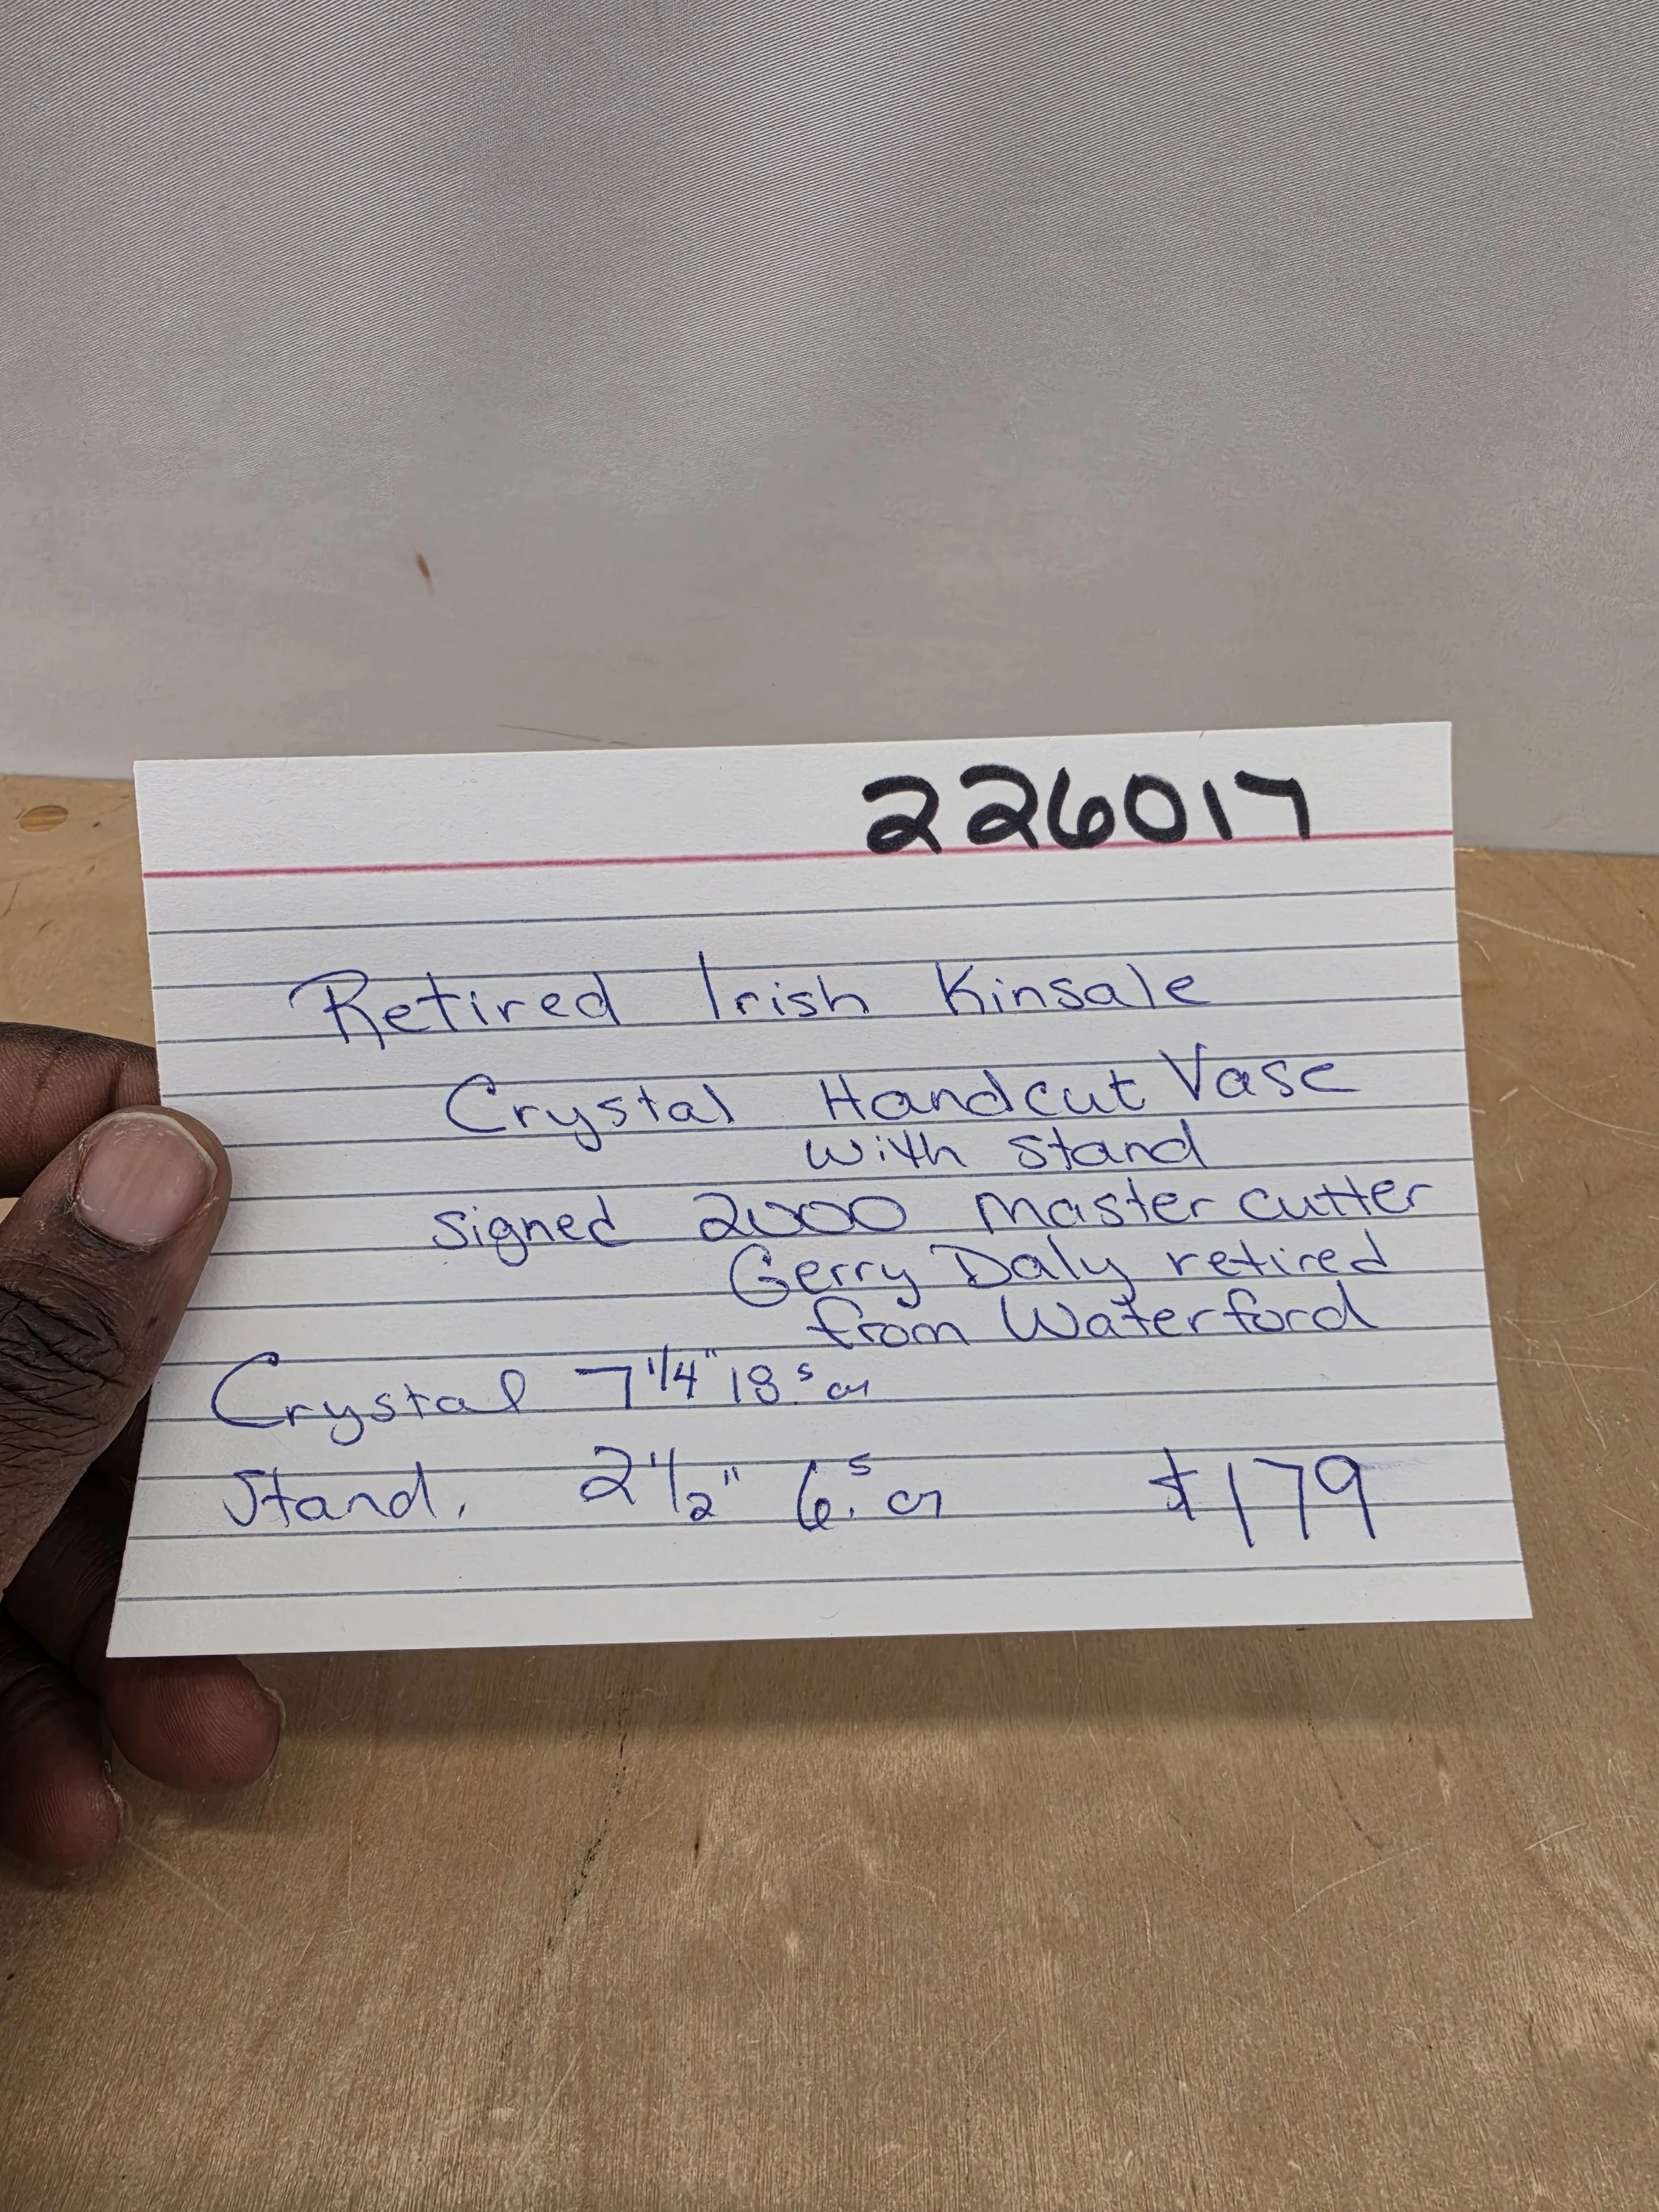 226017
Retired Irish Kinsale
Crystal Handcut Vase
with stand
signed 2000 Master cutter
Gerry Daly retired
from Waterford
Crystal 7 1/4" 18.5 cm
Stand. 2 1/2" 6.5 cm $179